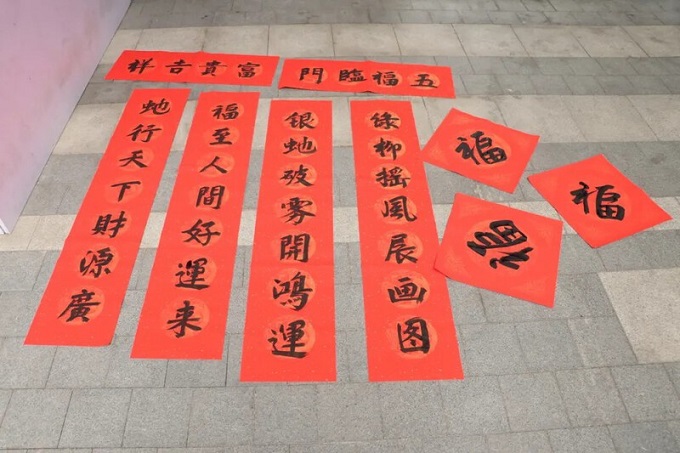 富貴吉祥
五福臨門
虵行天下財源廣
福至人間好運来
銀虵破雾開鴻運
绿柳摇風展画图
福
福
福